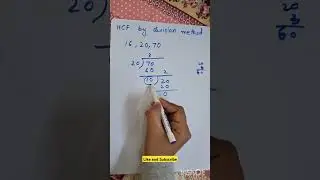 HCF by division method
16, 20, 70
20 ) 70 ( 2
60
10 ) 20 ( 2
20
0
20
3
60
Like and Subscribe